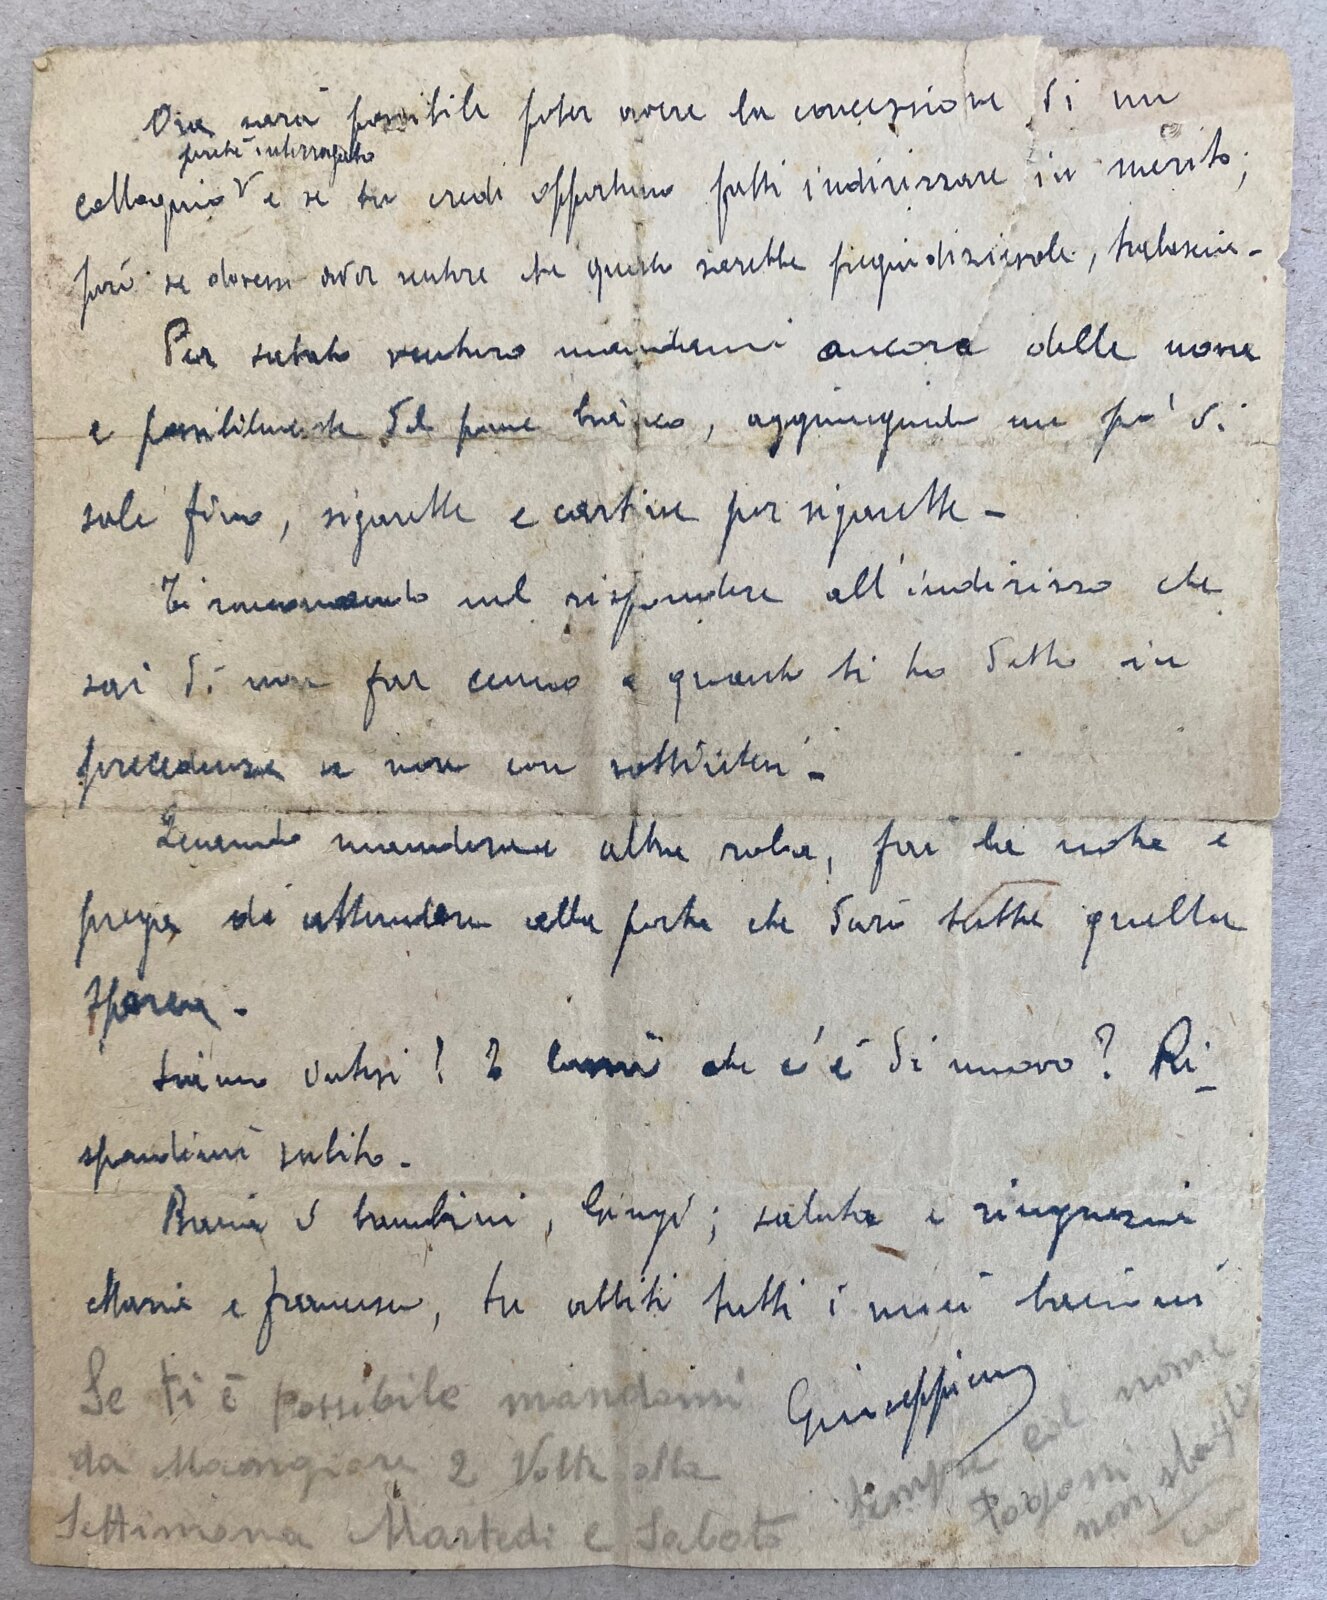 Ora sarà possibile poter avere la concessione di un
perché interrogato
colloquio e se tu credi opportuno fatti indirizzare in merito;
però se dovessi aver sentore che questo sarebbe pregiudizievole, tralascia -
Per sabato venturo mandami ancora delle uova
e possibilmente del pane bianco, aggiungendo un po' di
sale fino, sigarette e cartine per sigarette -
Ti raccomando nel rispondere all'indirizzo che
sai di non far cenno a quanto ti ho detto in
precedenza se non con sottintesi -
Quando manderai altra roba, fai la nota e
prega di attendere alla porta che darò tutta quella
sporca -
Siamo intesi! E costì che c'è di nuovo? Ri-
spondimi subito -
Bacia i bambini, Gingi; saluta e ringrazia
Maria e Francesco, tu abbiti tutti i miei bacioni
Giuseppino
Se ti è possibile mandami
da Mangiare 2 Volte alla
Settimana Martedi e Sabato
sempre col nome
non sbagli